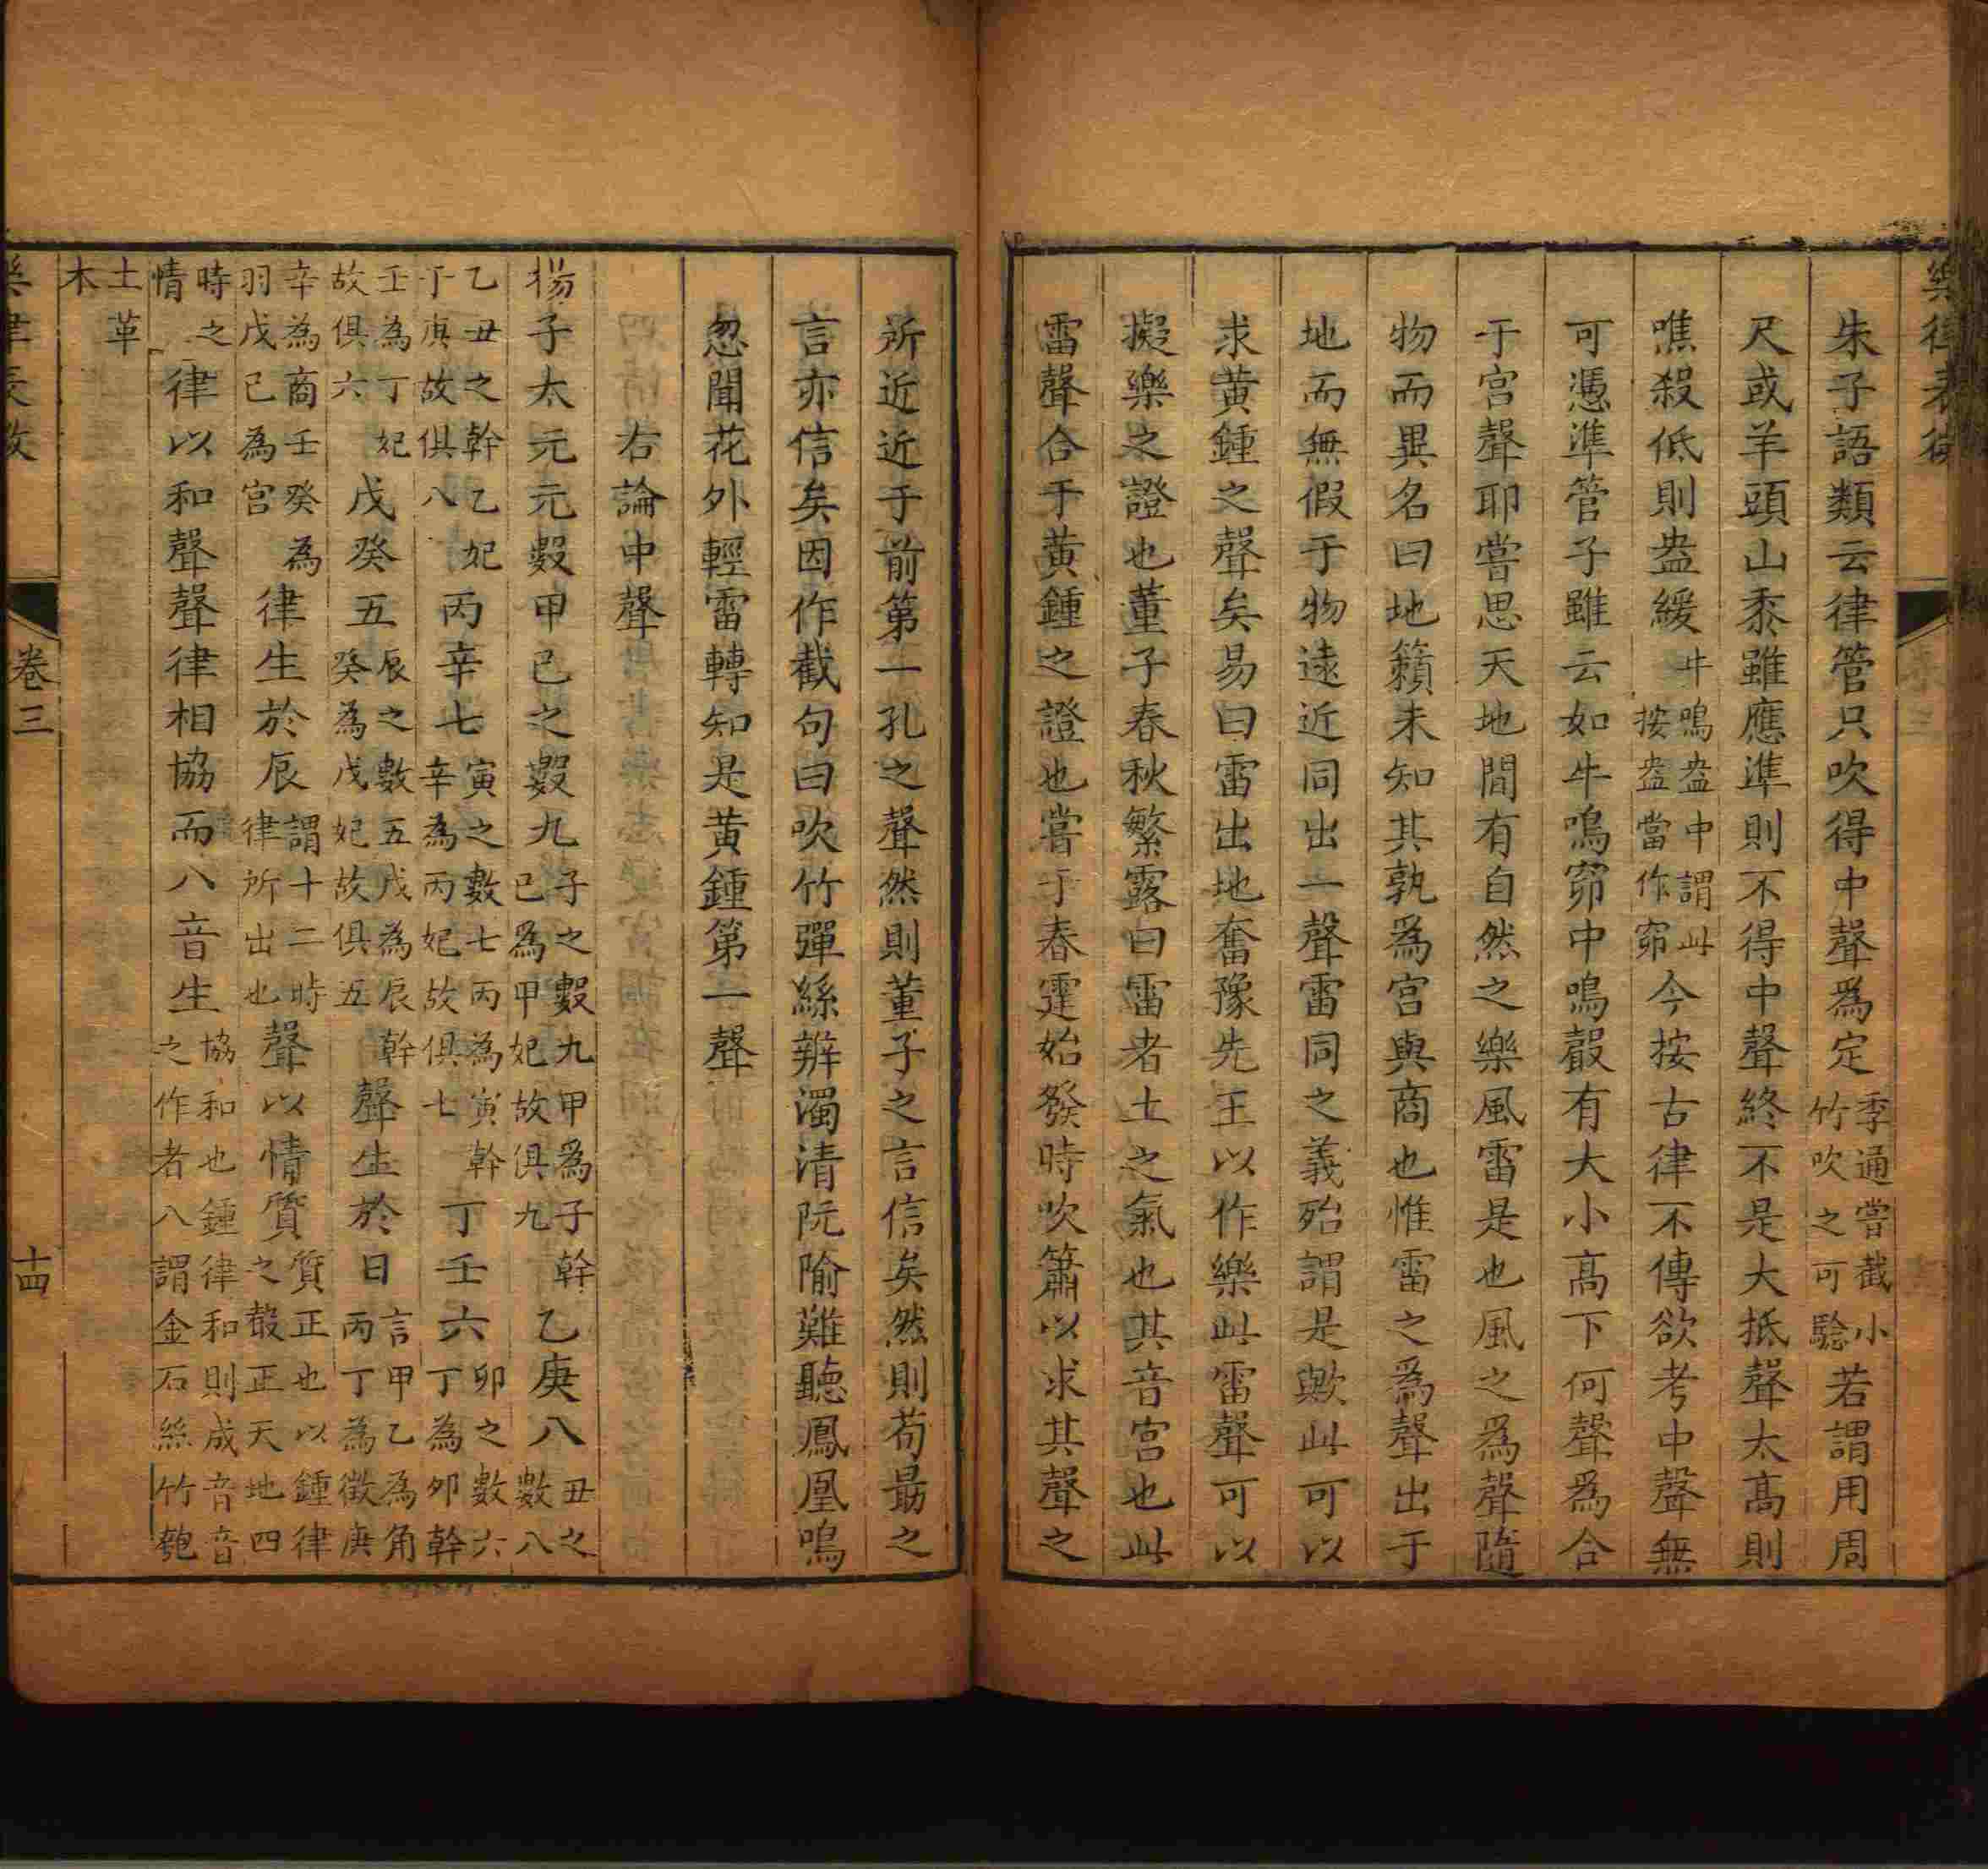 樂律表微
朱子語類云律管只吹得中聲爲定季通嘗截小竹吹之可驗若謂用周
尺或羊頭山黍雖應準則不得中聲終不是大抵聲太高則
噍殺低則盎緩牛鳴盎中謂此按盎當作窌今按古律不傳欲考中聲無
可憑準管子雖云如牛鳴窌中鳴嚴有大小高下何聲爲合
于宫聲耶嘗思天地間有自然之樂風雷是也風之爲聲隨
物而異名曰地籟未知其孰爲宫與商也惟雷之爲聲出于
地而無假于物遠近同出一聲雷同之義殆謂是歟此可以
求黄鍾之聲矣易曰雷出地奮豫先王以作樂此雷聲可以
擬樂之證也董子春秋繁露曰雷者土之氣也其音宫也此
雷聲合于黄鍾之證也嘗于春霆始發時吹簫以求其聲之
所近近于前第一孔之聲然則董子之言信矣然則荀勗之
言亦信矣因作截句曰吹竹彈絲辨濁清阮隃難聽鳳凰鳴
忽聞花外輕雷轉知是黄鍾第一聲
右論中聲
揚子太元元數甲己之數九子之數九甲爲子幹己爲甲妃故俱九乙庚八丑之數八
乙丑之幹乙妃于庚故俱八丙辛七寅之數七丙為寅幹辛為丙妃故俱七丁壬六卯之數六丁為卯幹
壬為丁妃故俱六戊癸五辰之數五戊為辰幹癸為戊妃故俱五聲生於日言甲乙為角丙丁為徵庚
辛為商壬癸為羽戊己為宫律生於辰謂十二時律所出也聲以情質質正也以鍾律之聲正天地四
時之情律以和聲聲律相協而八音生協和也鍾律和則成音音之作者八謂金石絲竹匏
土革木
卷三
十四